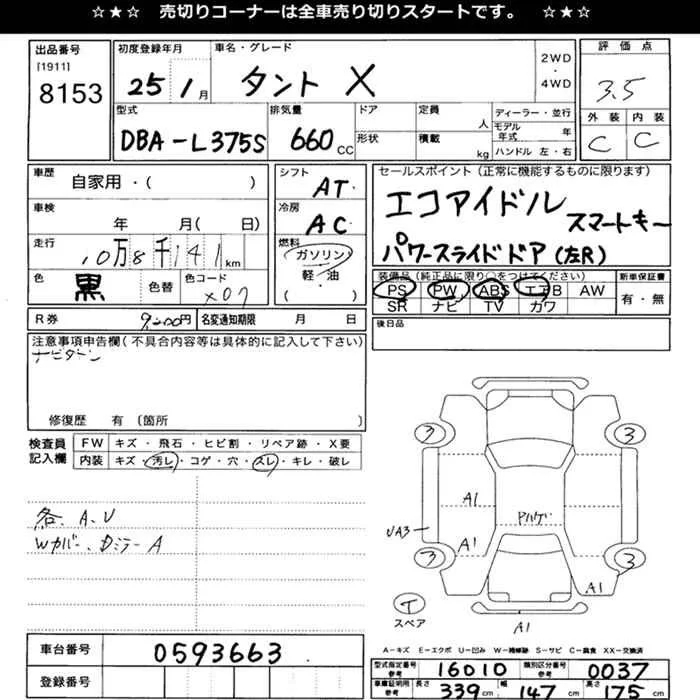 ☆★☆ 売切りコーナーは全車売り切りスタートです。 ☆★☆
出品番号 初度登録年月 車名・グレード 2WD・4WD 評価点
[1911] 8153 25 1月 タント X 3.5
型式 排気量 ドア 定員 人 ディーラー・並行 外装 内装
DBA-L375S 660CC 形状 積載 kg モデル年式 年 ハンドル 左・右 C C
車歴 自家用・( ) シフト AT セールスポイント(正常に機能するものに限ります)
車検 年 月( 日) 冷房 AC エコアイドル スマートキー
走行 10万8千141km 燃料 ガソリン 軽・油 ( ) パワースライドドア(左R)
色 黒 色替 色コード X07 装備品(純正品に限り○をつけてください) 新車保証書
PS PW ABS エアB AW 有・無
SR ナビ TV カワ
R券 円 名変通知期限 月 日 後日品
注意事項申告欄(不具合内容等は具体的に記入して下さい)
修復歴 有 〔箇所 〕
検査員記入欄 FW キズ・飛石・ヒビ割・リペア跡・X要
内装 キズ・汚レ・コゲ・穴・スレ・キレ・破レ
3 3
A1
各、A、U
Wカバー、DミラーA
UA3 A1
3 3
A1
T スペア
A1
A-キズ E-エクボ U-凹み W-補修跡 S-サビ C-腐食 XX-交換済
車台番号 0593663 型式指定番号 参考 16010 類別区分番号 参考 0037
登録番号 車庫証明用 参考 長さ 339cm 幅 147cm 高さ 175cm